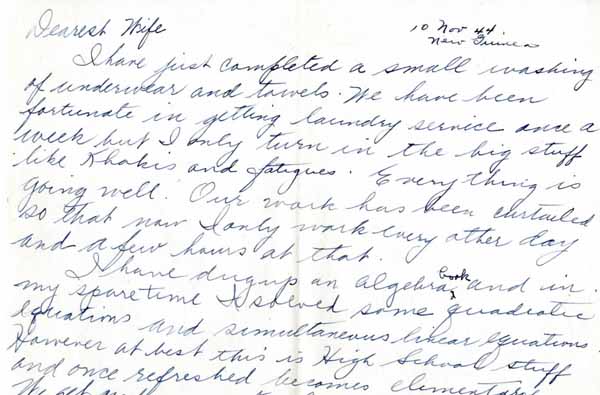 Dearest Wife
10 Nov 44
New Guinea
I have just completed a small washing
of underwear and towels. We have been
fortunate in getting laundry service once a
week but I only turn in the big stuff
like Khakis and fatigues. Everything is
going well. Our work has been curtailed
so that now I only work every other day
and a few hours at that.
I have dug up an algebra book and in
my spare time I solved some quadratic
equations and simultaneous linear equations.
However at best this is High School stuff
and once refreshed becomes elementary.
We get